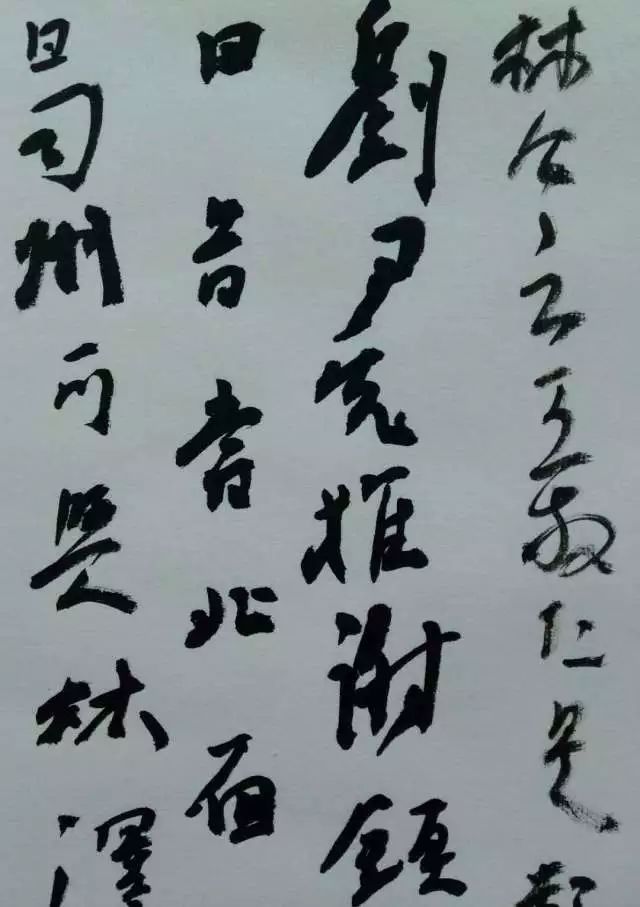 林公云王敬仁是超
劉尹先推謝鎮
曰昔嘗北面
曰司州可與林澤